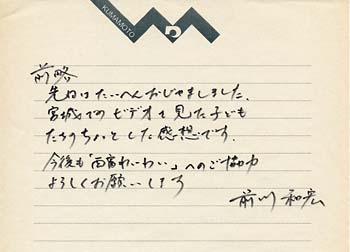 KUMAMOTO
前略
先日はたいへんおじゃましました。
宮城でのビデオを見た子ども
たちのちょっとした感想です。
今後も「わいわい」へのご協力
よろしくお願いします
前川和宏